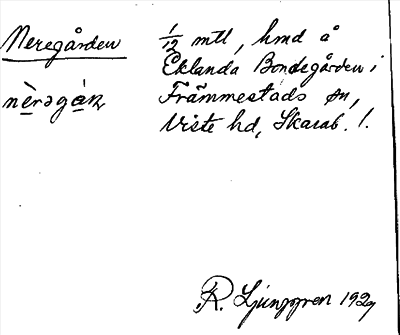 Neregården 1/12 mtl, hmd å
Eklanda Bondegården i
nè̱rəgá̱ṉ Främmestads sn,
Viste hd, Skarab. l.
R. Ljunggren 1927